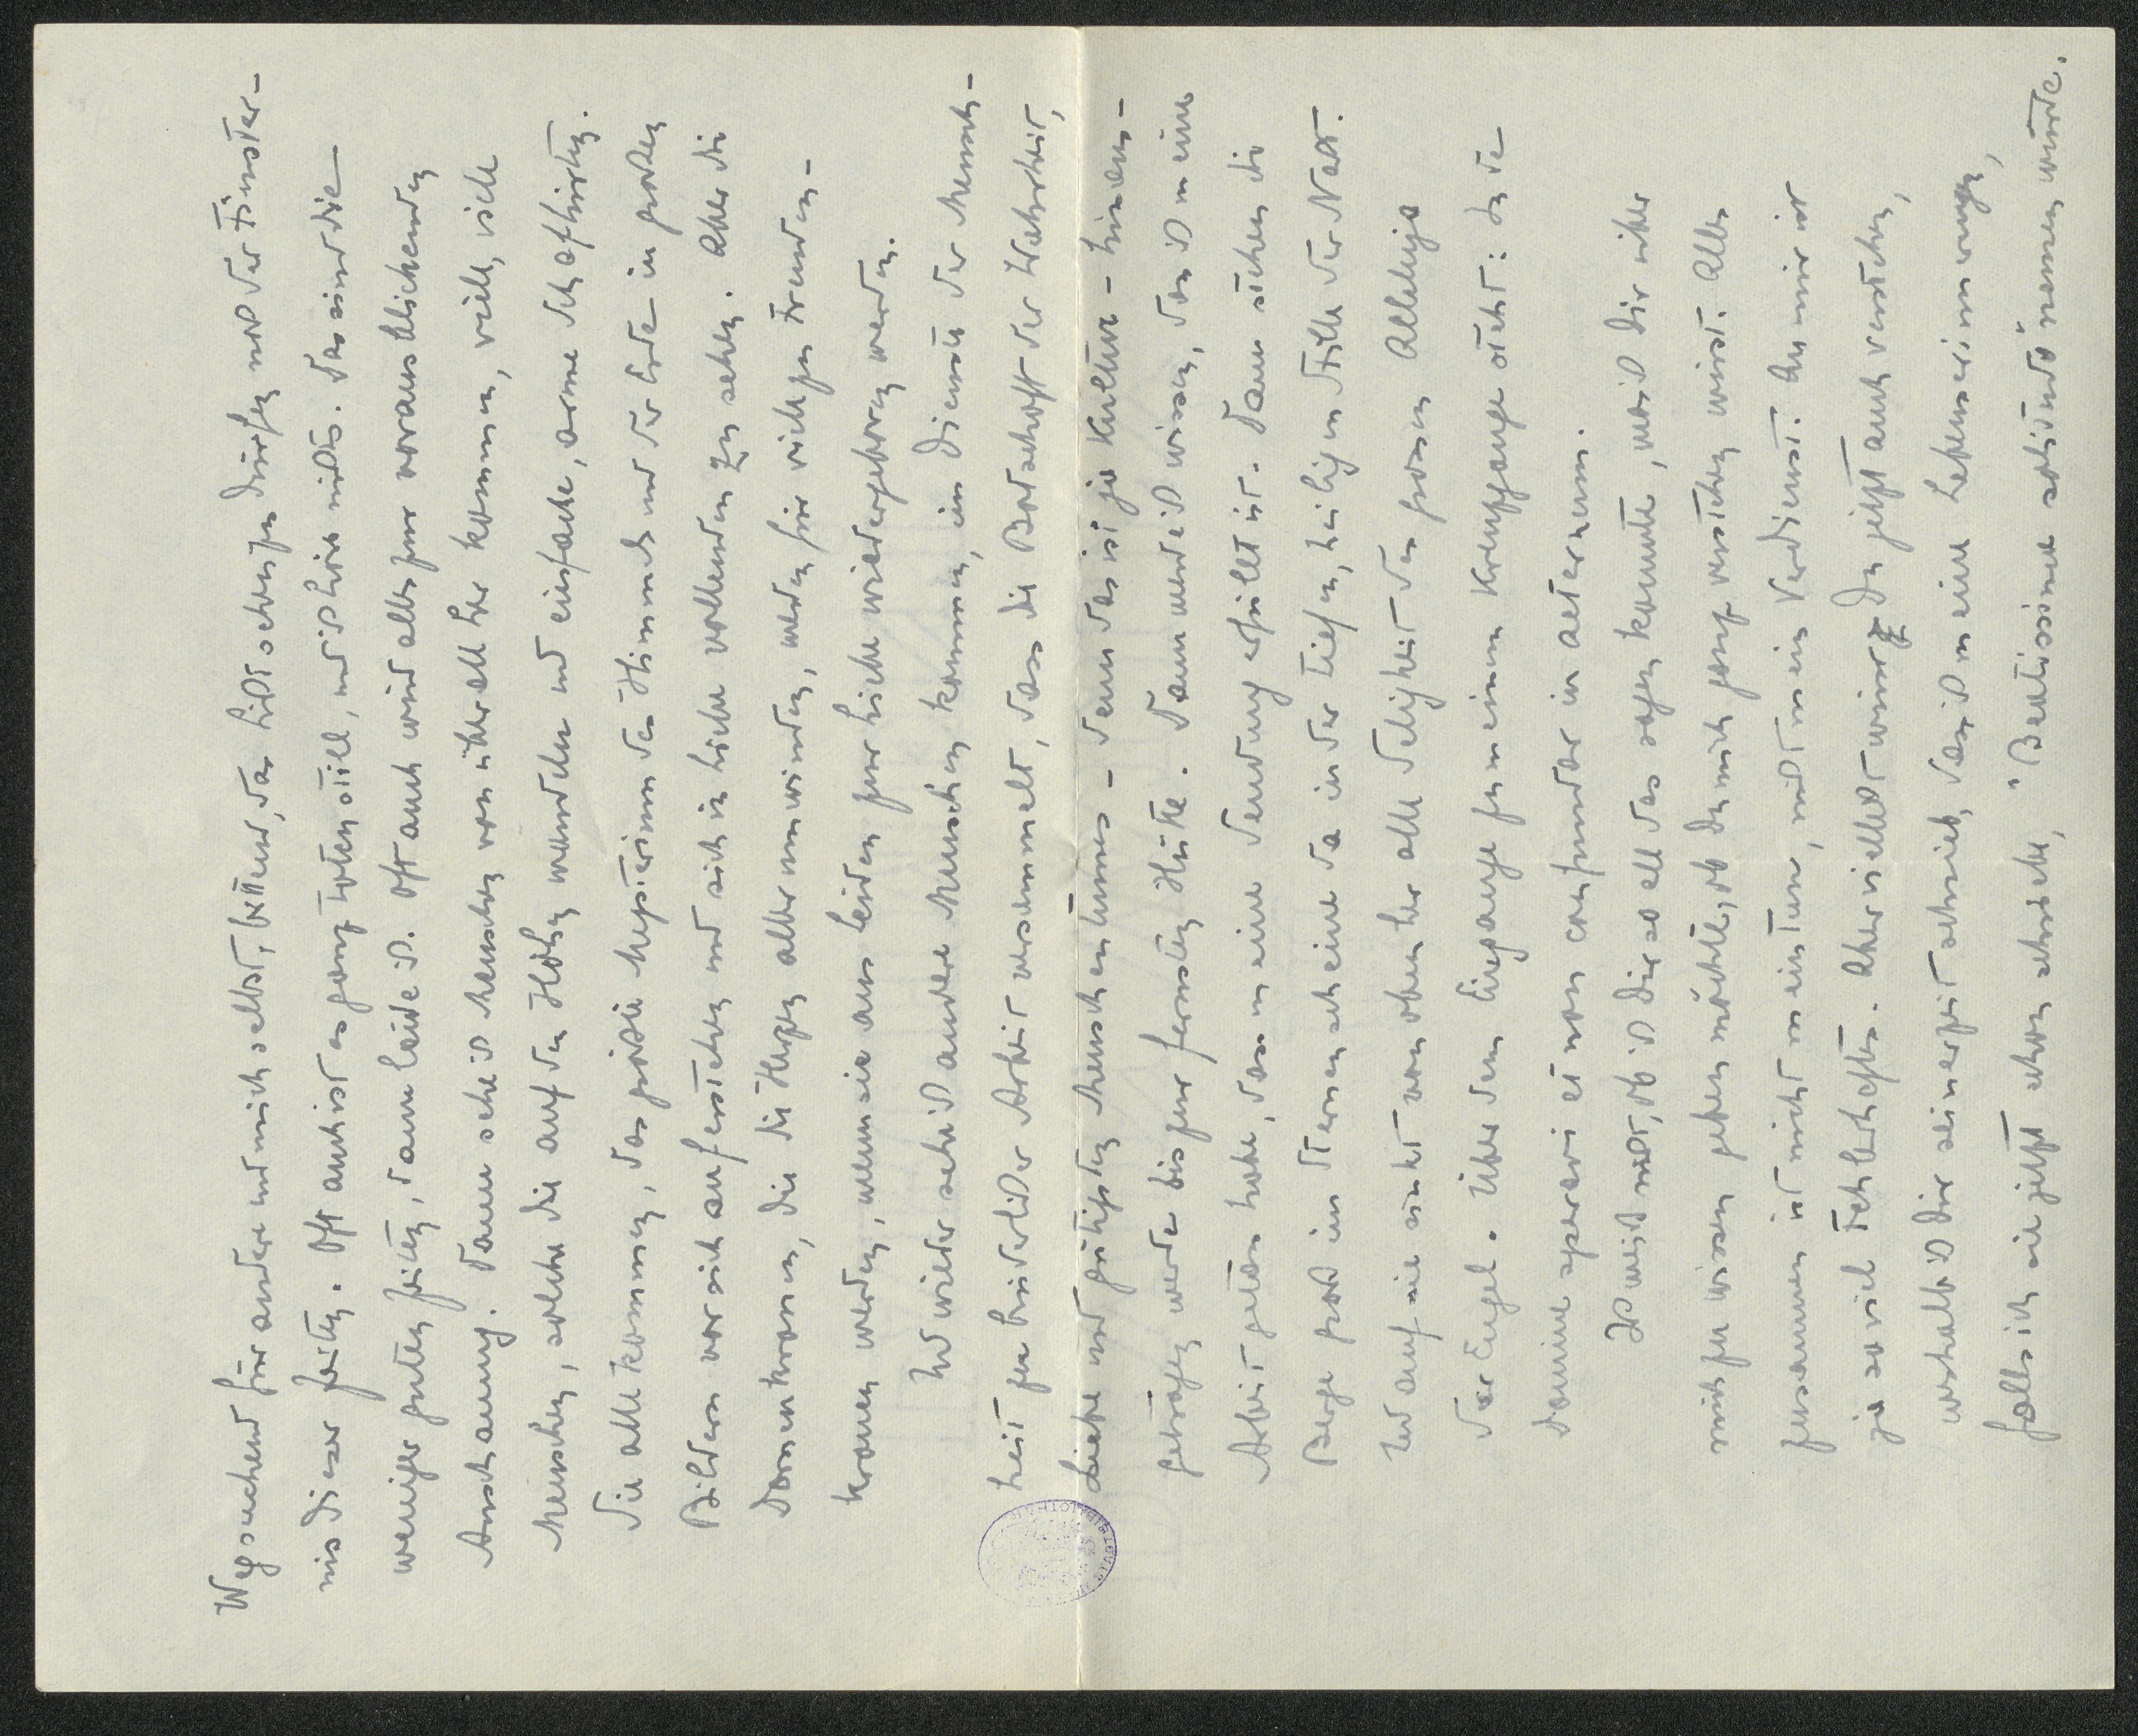 Wegsuchend für andere und mich selbst, bittend, das Licht sehen zu dürfen nach der Finster-
nis dieser Zeiten. Oft auch ist es ganz totenstill, und ich höre nichts. Das sind die
weniger guten Zeiten, dann leide ich. Oft auch wird alles zur vorausblickenden
Anschauung. Dann sehe ich Menschen von überall her kommen, viele, viele
Menschen, solche die auf den Höhen wandeln und einfache, arme Schafhirten.
Sie alle kommen, das große Mysterium des Himmels und der Erde in großen
Bildern vor sich auferstehen und sich in Liebe vollenden zu sehen. Aber die
Dornenkronen, die die Herzen aller umwinden, werden für viele zu Freuden-
kronen werden, wenn sie aus Leiden zur Liebe wiedergeboren werden.
Und wieder seh ich andere Menschen kommen, im Dienste der Mensch-
heit zu brüderlicher Arbeit versammelt, dass die Botschaft der Wahrheit,
Liebe und gütigsten Menschentumes – denn das ist ja Kultur – hinaus-
getragen werde bis zur fernsten Hütte. Dann werde ich wissen, dass ich meine
Arbeit getan habe, dass meine Sendung erfüllt ist. Dann stehen die
Berge groß im Sternenscheine da in der tiefen, heiligen Stille der Nacht.
Und auf sie sinkt von oben her alle Seligkeit des großen Alleluja
der Engel. Über dem Eingange zu meinem Kreuzgange steht: In te
domine speravi et non confundar in aeternum.
Ich weiß nicht, ob ich Dir so all das sagen konnte, was ich Dir über
mich zu wissen geben möchte, ob Du mich ganz verstehen wirst. Alles
zusammen ist nicht mein Tun, nicht mein Verdienst. An mir ist
ja so viel Fehlerhaftes. Aber vielleicht wirst Du jetzt auch verstehen,
weshalb ich Dir seinerzeit schrieb, dass ich meine Lebenserinnerungen,
falls ich sie jetzt schon schriebe, "Beatissima solitudo" nennen würde.